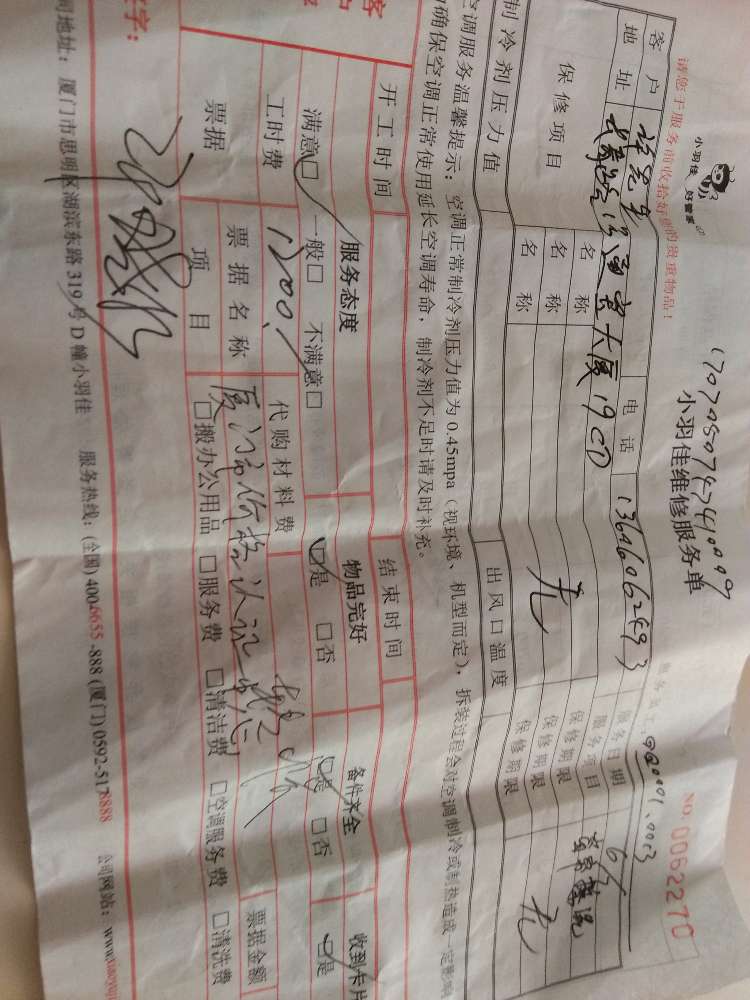 小羽佳 好管家
1707050747410009
小羽佳维修服务单
NO. 0062270
请您于服务前收拾好您的贵重物品!
服务员工:
客户
电话
13646062593
服务日期
6/
地址
大厦19CD
服务项目
保修项目
名称
保修期限
名称
无
保修期限
名称
保修期限
无
制冷剂压力值
出风口温度
空调服务温馨提示:空调正常制冷剂压力值为0.45mpa(视环境、机型而定),拆装过程会对空调制冷或制热造成一定影响
确保空调正常使用延长空调寿命,制冷剂不足时请及时补充。
开工时间
结束时间
服务态度
物品完好
备件齐全
收到卡片
满意☑ 一般□ 不满意□
☑是 □否
☑是 □否
☑是
工时费
1200
代购材料费
票据
票据名称
票据金额
项目
□搬办公用品 □服务费 □清洁费 □空调服务费 □清洗费
字:
司地址:厦门市思明区湖滨东路319号D幢小羽佳 服务热线:(全国) 4006655-888 (厦门) 0592-5178888 公司网站: